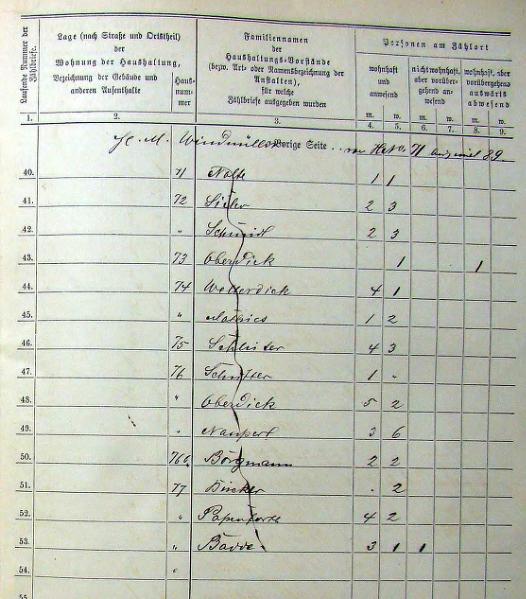 Laufende Nummer der Zählbriefe.
Lage (nach Straße und Ortsteil)
der
Wohnung der Haushaltung,
Bezeichnung der Gebäude und
anderen Aufenthalte
Haus-
nummer
Familiennamen
der
Haushaltungs-Vorstände
(bezw. Art- oder Namensbezeichnung der
Anstalten),
für welche
Zählbriefe ausgegeben wurden
Personen am Zählort
wohnhaft
und
anwesend
nicht wohnhaft,
aber vorüber-
gehend an-
wesend
wohnhaft, aber
vorübergehend
auswärts
abwesend
m. w. m. w. m. w.
1. 2. 3. 4. 5. 6. 7. 8. 9.
H. M. Vorige Seite 71 89.
40. 71 Nolte 1 1
41. 72 2 3
42. " Schmidt 2 3
43. 73 Oberdick 1 1
44. 74 Wetterdick 4 1
45. " 1 2
46. 75 Schlüter 4 3
47. 76 1 -
48. " Oberdick 5 2
49. " 3 6
50. 76a Borgmann 2 2
51. 77 . 2
52. " 4 2
53. " 3 1 1
54. "
55.